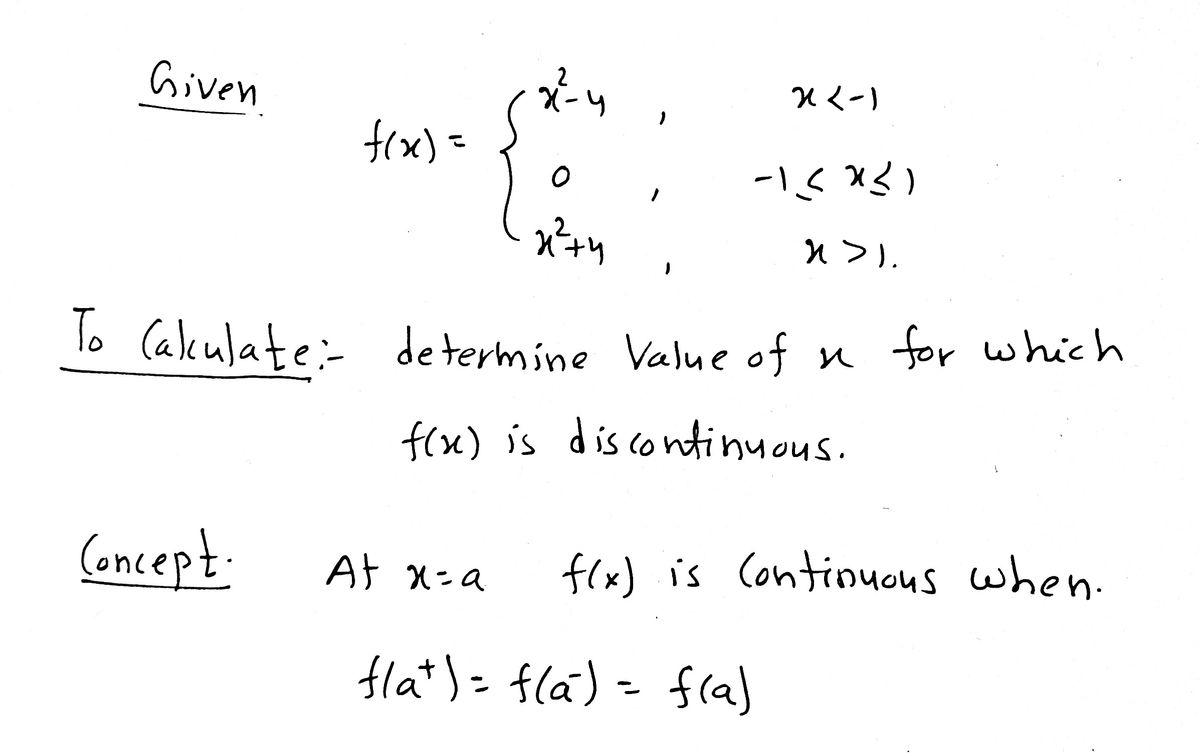 Given
f(x) = { x²-4 , x < -1
0 , -1 ≤ x ≤ 1
x²+4 , x > 1.
To Calculate:- determine Value of x for which
f(x) is discontinuous.
Concept. At x=a f(x) is Continuous when.
f(a⁺) = f(a⁻) = f(a)